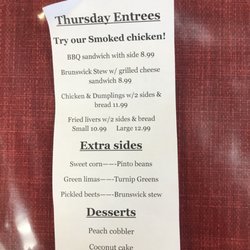 Thursday Entrees
Try our Smoked chicken!
BBQ sandwich with side 8.99
Brunswick Stew w/ grilled cheese
sandwich 8.99
Chicken & Dumplings w/2 sides &
bread 11.99
Fried livers w/2 sides & bread
Small 10.99 Large 12.99
Extra sides
Sweet corn-----Pinto beans
Green limas-----Turnip Greens
Pickled beets-----Brunswick stew
Desserts
Peach cobbler
Coconut cake